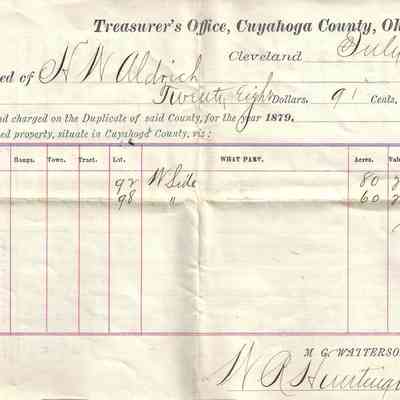 Treasurer's Office, Cuyahoga County, Oh
Cleveland July
ed of H W Aldrich
Twenty Eight Dollars. 91 Cents,
nd charged on the Duplicate of said County, for the year 1879,
ed property, situate in Cuyahoga County, viz:
Range. Town. Tract. Lot. WHAT PART. Acres. Val
92 W Side 80 2
98 " 60 2
M. G. WATTERSO
W R Hunting